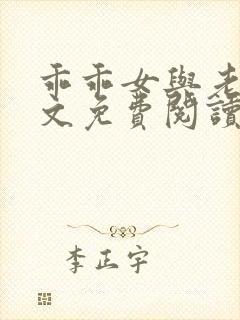 乖乖女與老
文免費閱讀
李正宇